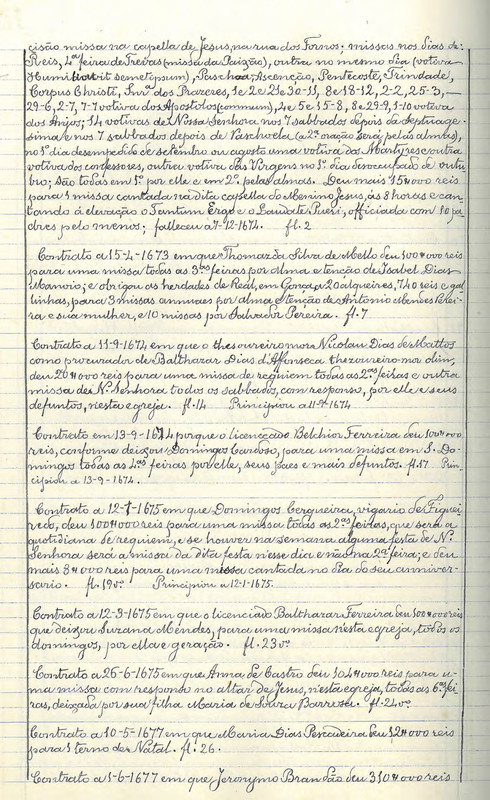 cisão missa na capella de Jesus, na rua dos Fornos; missas nos dias de:
Reis, 4ª feira de Trevas (missa da Paixão), outra no mesmo dia (votiva
Humiliavit semetipsum), Paschoa, Ascenção, Pentecoste, Trindade,
Corpus Christi, Inv. dos Prazeres, 1 e 2 e 30-11, 8 e 18-12, 2-2, 25-3, —
29-6, 2-7, 7-7 votiva dos Apostolos (commum), 4 e 5 15-8, 8 e 29-9, 1-10 votova
dos Anjos; 14 votivas de Nossa Senhora nos 7 sabbados depois da septuage-
sima e nos 7 sabbados depois de Paschoela (a 2ª oração será pelas almas),
no 1º dia desempedido de setembro ou agosto uma votiva dos Martyres e outra
votiva dos confessores, outra votiva das Virgens no 1º dia desocupado de outu-
bro; são todas em 1º por elle e em 2º pelas almas. Deu mais 15#000 reis
para 1 missa cantada na dita capella do Menino Jesus, ás 8 horas e can-
tando á elevação o Tantum Ergo e o Laudate Pueri, officiada com 10 pa-
dres pelo menos; falleceu a 7-12-1674. fl. 2
Contrato a 15-4-1673 em que Thomaz da Silva de Mello deu 100#000 reis
para uma missa todas as 3ªs feiras por alma e tenção de Isabel Dias
e obrigou as herdades de Real, em a 20 alqueires, 740 reis e gal-
linhas, para 3 missas annuaes por alma e tenção de Antonio Mendes Perei-
ra e sua mulher, e 10 missas por Salvador Pereira. fl. 7
Contrato a 11-9-1674 em que o thesoureiro mor Nicolau Dias de Mattos
como procurador de Balthazar Dias d'Affonseca thezoureiro-mor olim,
deu 200#000 reis para uma missa de requiem todas as 2ªs feiras e outra
missa de Nª Senhora todos os sabbados, com responso, por elle e seus
defuntos, n'esta egreja. fl. 14 Principiou a 11-9-1674
Contrato em 13-9-1674 porque o licenceado Belchior Ferreira deu 100#000
reis, conforme deixou Domingos Cardoso, para uma missa em S. Do-
mingos todas as 4ªs feiras por elle, seus paes e mais defuntos. fl. 17 Prin-
cipiou a 13-9-1674.
Contrato a 12-1-1675 em que Domingos Cerqueira, vigario de Figuei-
redo, deu 100#000 reis para uma missa todas as 2ªs feiras, que será a
quotidiana de requiem, e se houver na semana alguma festa de Nª
Senhora será a missa da dita festa n'esse dia e não na 2ª feira; e deu
mais 8#000 reis para uma missa cantada no dia do seu anniver-
sario. fl. 19 vº Principiou a 12-1-1675.
Contrato a 12-3-1675 em que o licenciado Balthazar Ferreira deu 100#000 reis
que deixou Suzana Mendes, para uma missa nesta egreja, todos os
domingos, por ella e geração. fl. 23 vº
Contrato a 26-6-1675 em que Anna de Castro deu 104#000 reis para u-
ma missa com responso no altar de Jesus, n'esta egreja, todas as 6ªs fei-
ras, deixada por sua filha Maria de Souza Barrosa. fl. 24 vº
Contrato a 10-5-1677 em que Maria Dias Pescadeira deu 12#000 reis
para 1 terno de Natal. fl. 26.
Contrato a 1-6-1677 em que Jeronymo Brandão deu 310#000 reis